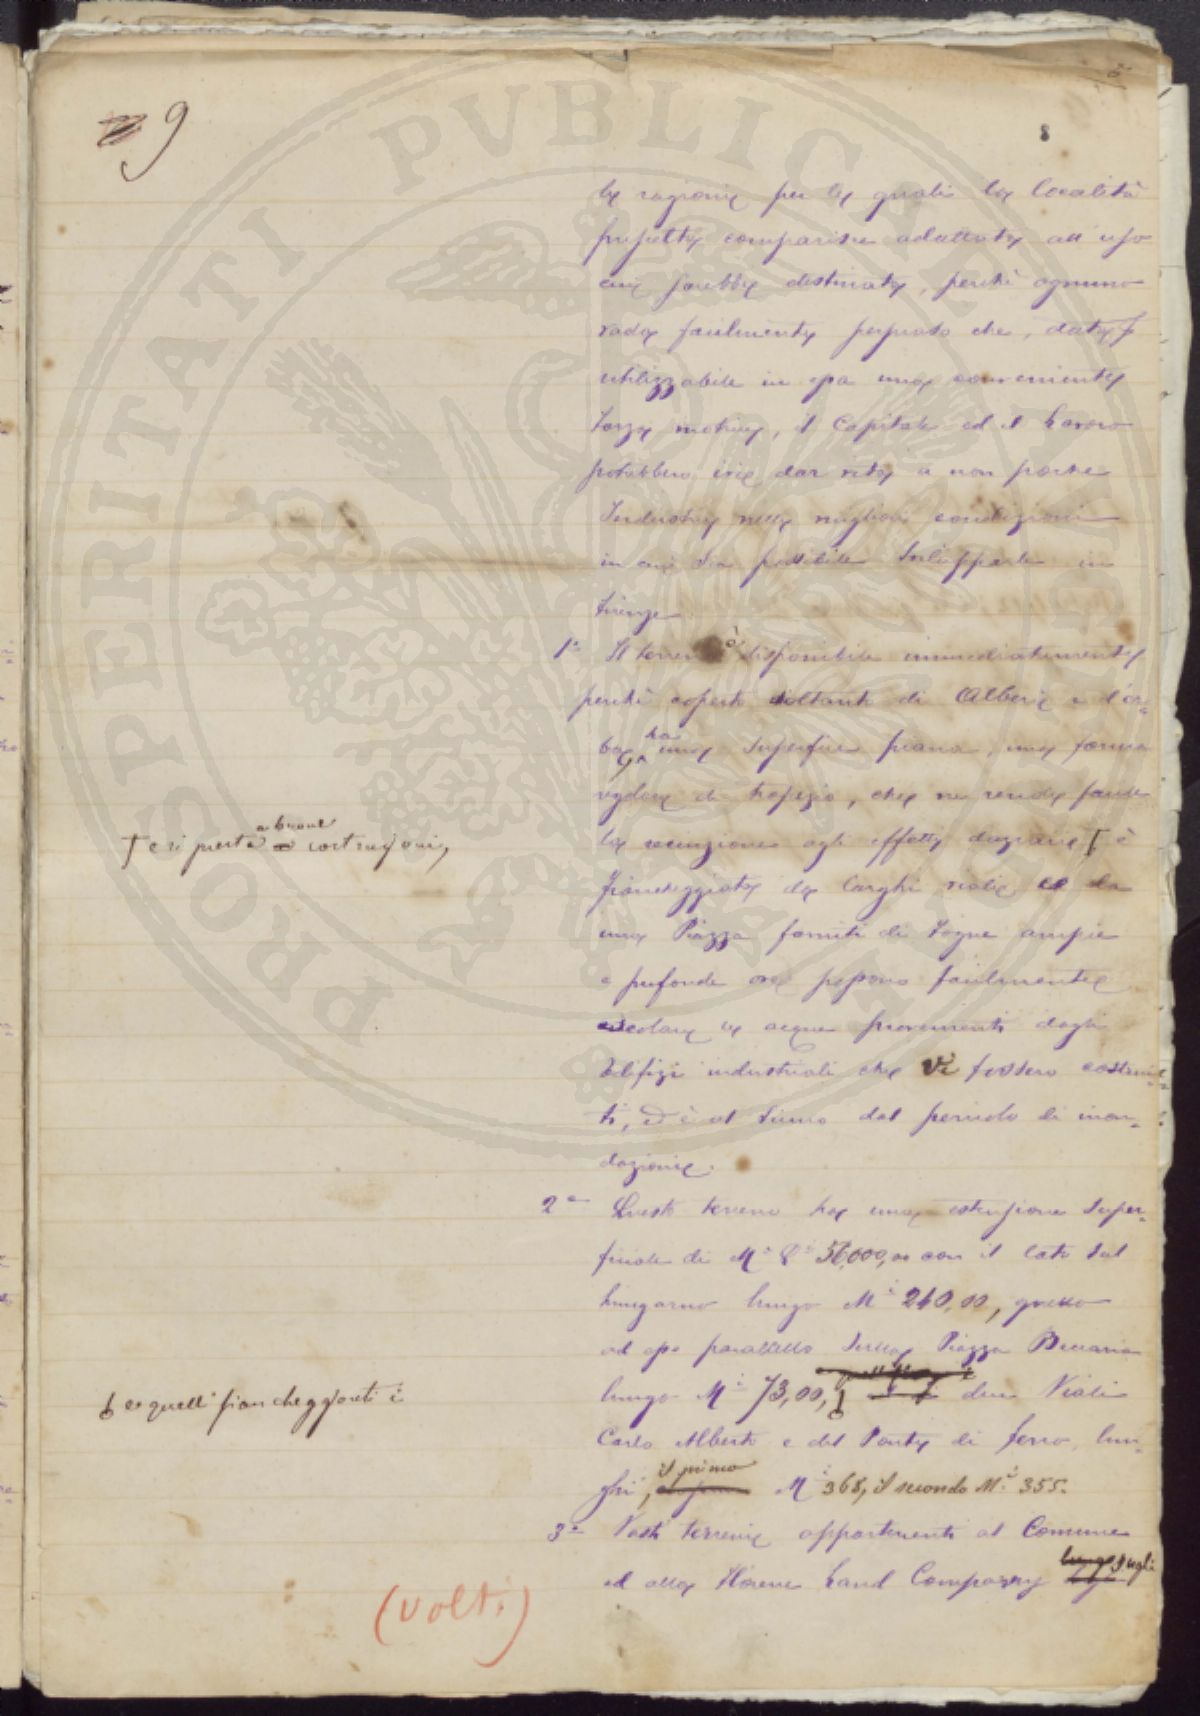 9
8
le ragioni per le quali la località
prescelta comparisce adattata all'uso
cui sarebbe destinata, perchè ognuno
vada facilmente persuaso che, data
utilizzabile in essa una conveniente
forza motrice, il Capitale ed il Lavoro
potrebbero ivi dar vita a non poche
Industrie nelle migliori condizioni
in cui sia possibile svilupparle in
Firenze
1° Il terreno è disponibile immediatamente
perchè coperto soltanto di Alberi e d'er-
ba, ha una superficie piana, una forma
regolare di trapezio, che ne rende facile
la recinzione agli effetti daziari † è
† e si presta a buone costruzioni,
fiancheggiata da larghi viali e da
una Piazza forniti di fogne ampie
e profonde ove possono facilmente
scolare le acque provenienti dagli
edifizi industriali che vi fossero costrui-
ti, ed è al sicuro dal pericolo di inon-
dazioni.
2° Questo terreno ha una estensione super-
ficiale di Mi Qi 56,000,00 con il lato sul
Lungarno lungo Mi 240,00, quello
ad esso parallelo sulla Piazza Beccaria
lungo Mi 73,00, due Viali
e quelli fiancheggianti i
Carlo Alberto e del Ponte di ferro, lun-
ghi, il primo Mi 368, il secondo Mi 355.
3° Vasti terreni appartenenti al Comune
ed alla Florence Land Company sugli
(volt.)
PROSPERITATI PVBLICAE